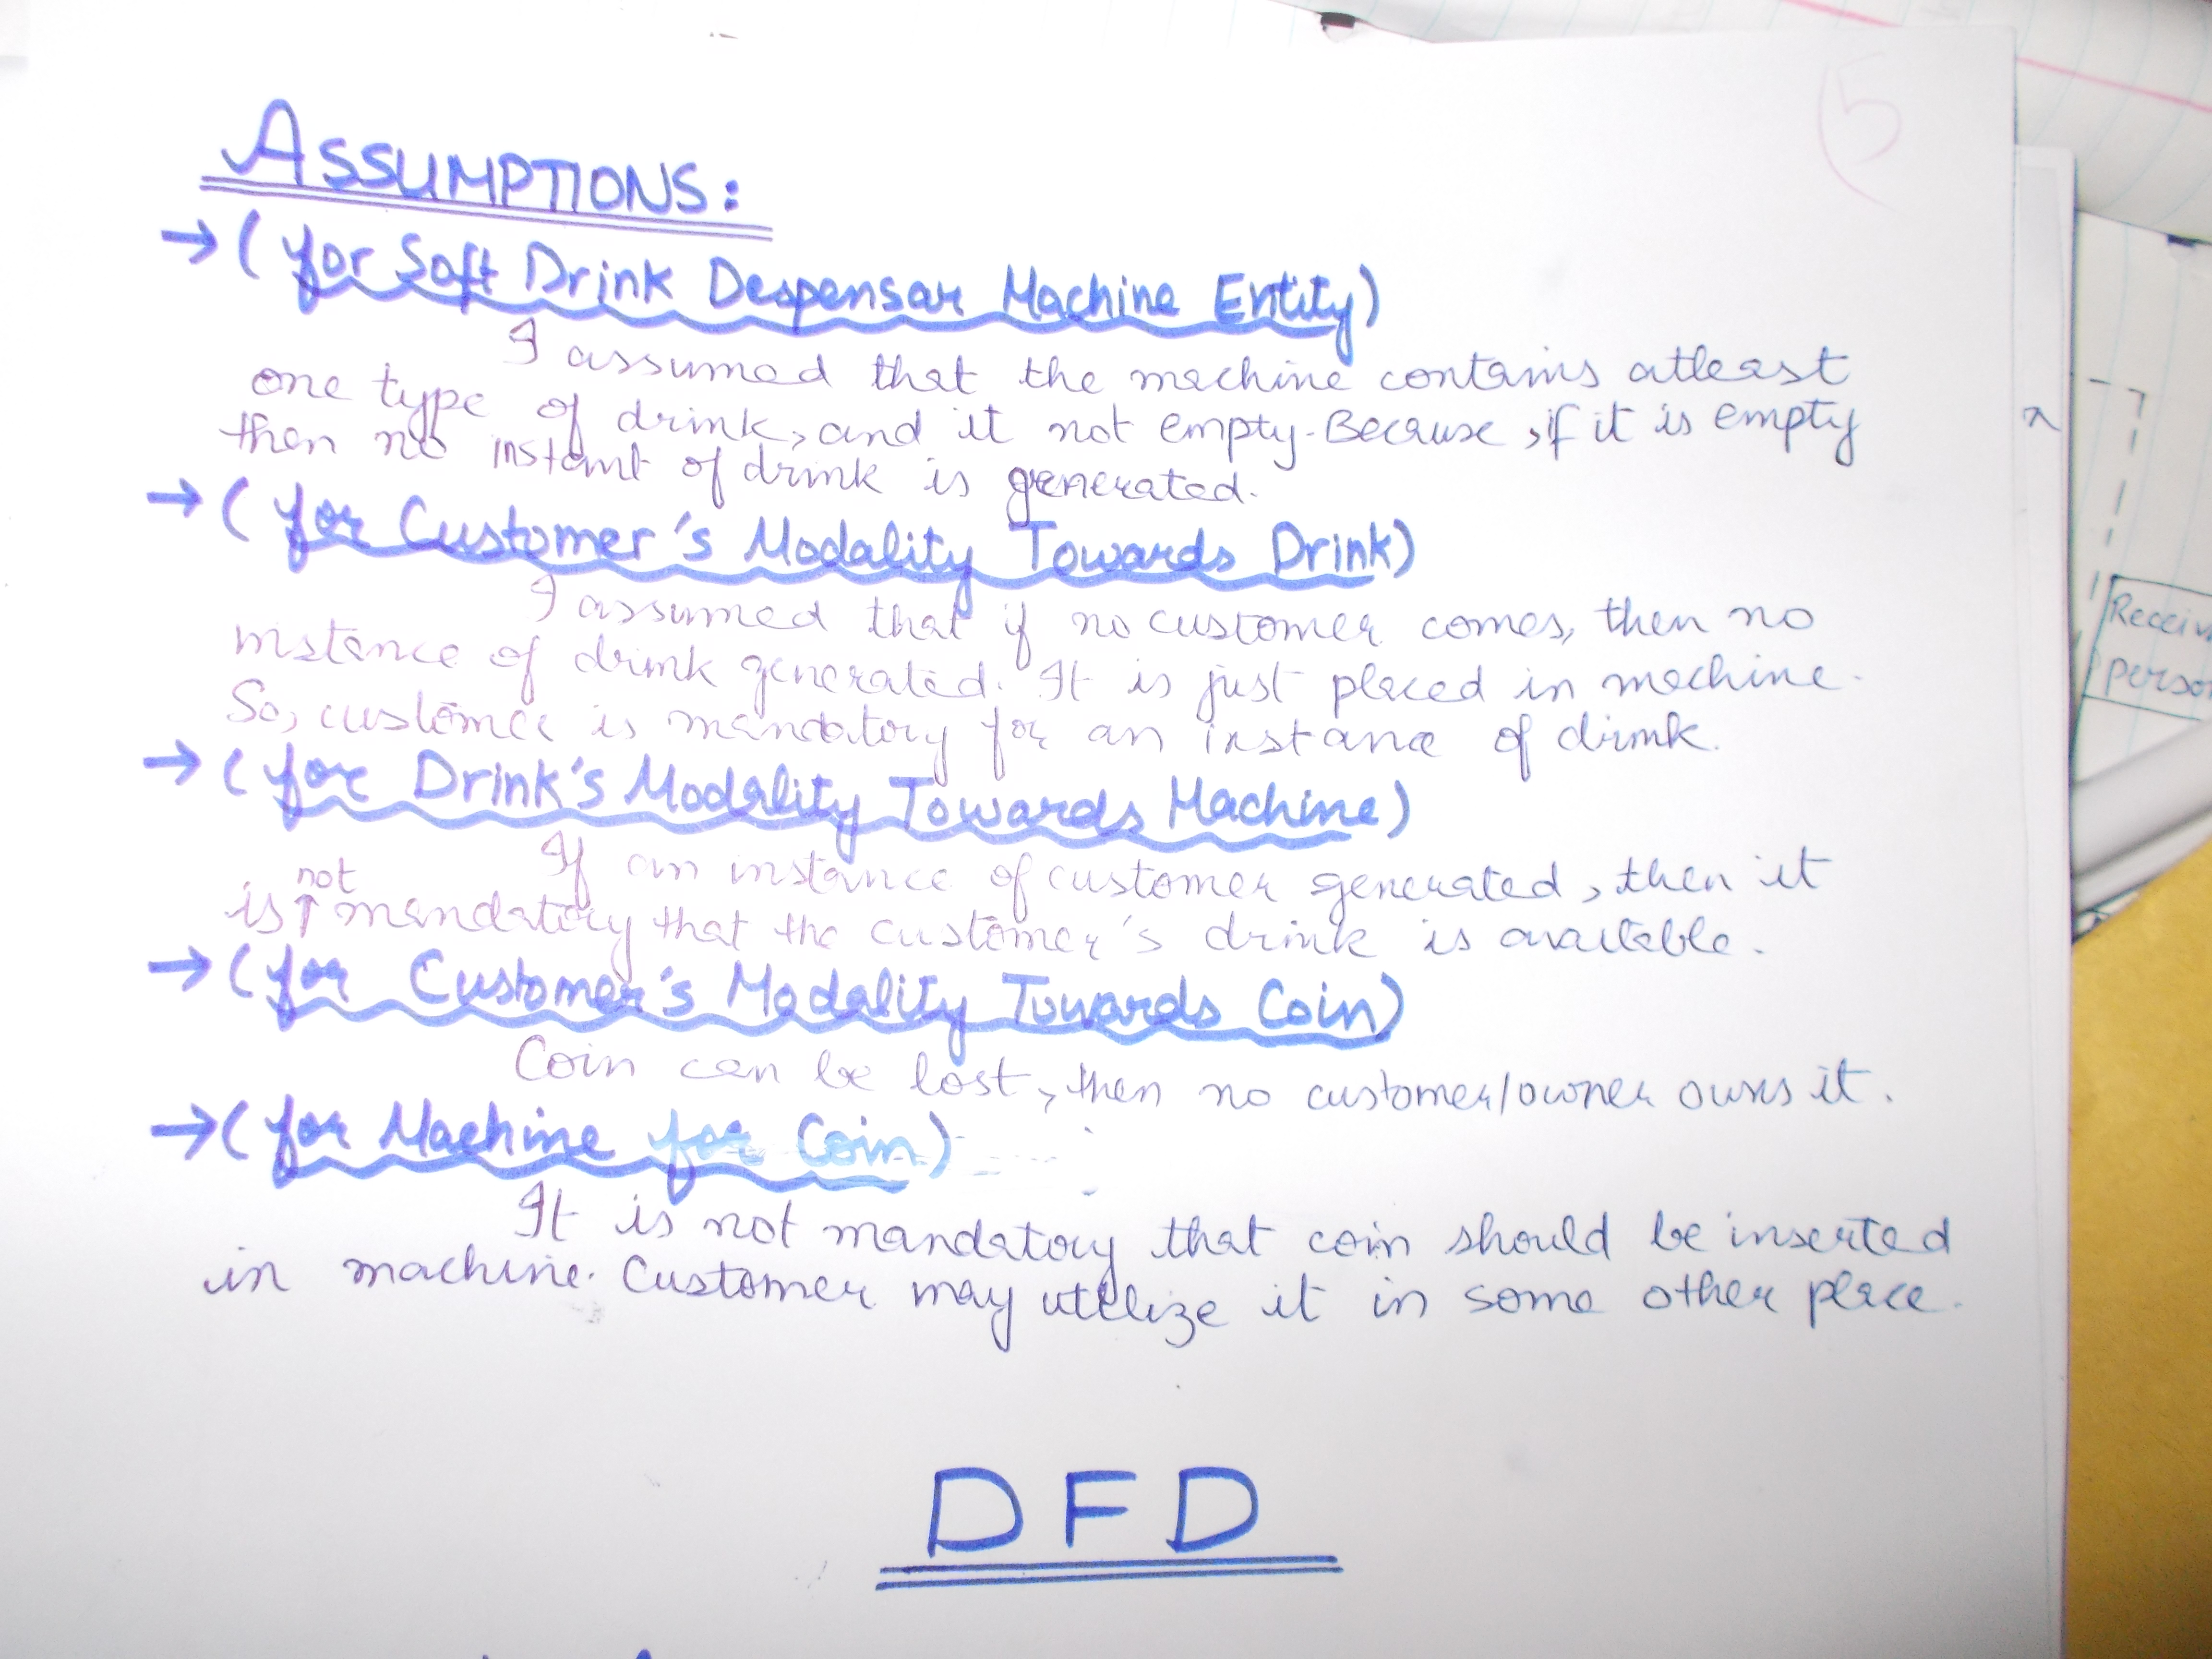 5
ASSUMPTIONS:
→ (for Soft Drink Despensar Machine Entity)
I assumed that the machine contains atleast
one type of drink, and it not empty. Because, if it is empty
then no instant of drink is generated.
→ (for Customer's Modality Towards Drink)
I assumed that if no customer comes, then no
instance of drink generated. It is just placed in machine.
So, customer is mandatory for an instance of drink.
→ (for Drink's Modality Towards Machine)
If an instance of customer generated, then it
is not mandatory that the customer's drink is available.
→ (for Customer's Modality Towards Coin)
Coin can be lost, then no customer/owner owns it.
→ (for Machine for Coin)
It is not mandatory that coin should be inserted
in machine. Customer may utilize it in some other place.
DFD